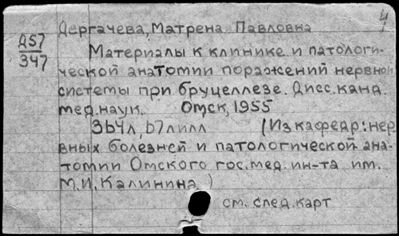 Дергачева, Матрена Павловна
Д57
347
Материалы к клинике и патологи-
ческой анатомии поражений нервной
системы при бруцеллезе. Дисс. канд.
мед. наук. Омск, 1955
364л, 67лилл (Из кафедр: нер
вных болезней и патологической ана-
томии Омского гос. мед. ин-та им.
М.И. Калинина)
см. след. карт